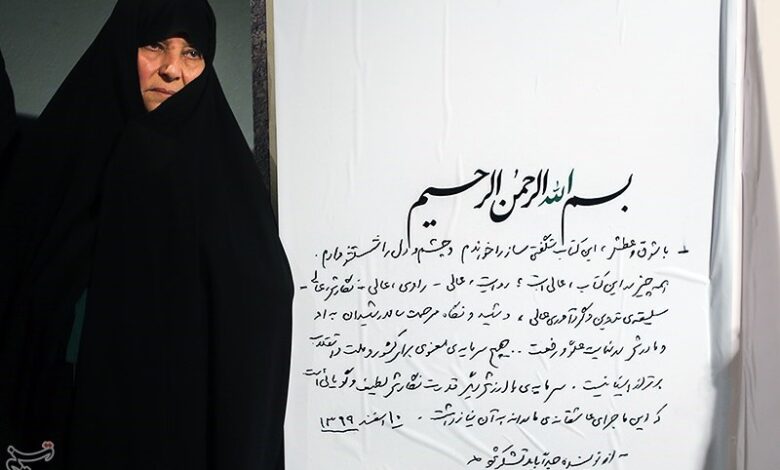 بسم الله الرحمن الرحیم
- با شوق و عطش، این کتاب شگفتی ساز را خواندم و چشم و دل را شستشو دادم.
همه چیز در این کتاب، عالی است؛ روایت، عالی - راوی، عالی - نگارش، عالی -
سلیقه‌ی تدوین و گردآوری عالی، و شهید و نگاه مرحمت سالار شهیدان به او
و مادرش در نهایت علوّ و رفعت .. هیچ سرمایه‌ی معنوی برای کشور و ملت و انقلاب
برتر از اینها نیست. سرمایه‌ی باارزش دیگر قدرت نگارش لطیف و گویائی است
که این ماجرای عاشقانه‌ی مادرانه به آن نیاز داشت. ۱۰ اسفند ۱۳۹۹
- از نویسنده جداً باید تشکر شود
تسنیم